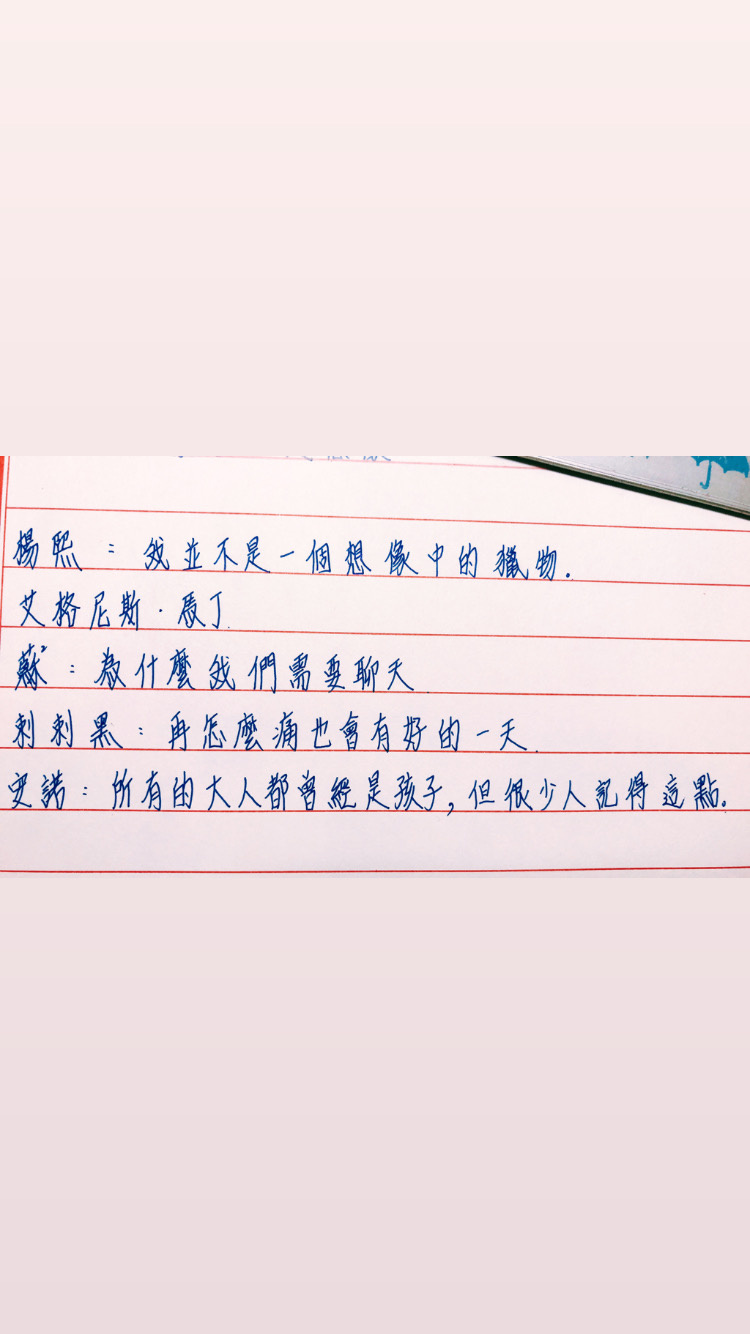 楊熙：我並不是一個想像中的獵物.
艾格尼斯·馬丁
蘇：為什麼我們需要聊天
刺刺黑：再怎麼痛也會有好的一天.
史諾：所有的大人都曾經是孩子,但很少人記得這點.